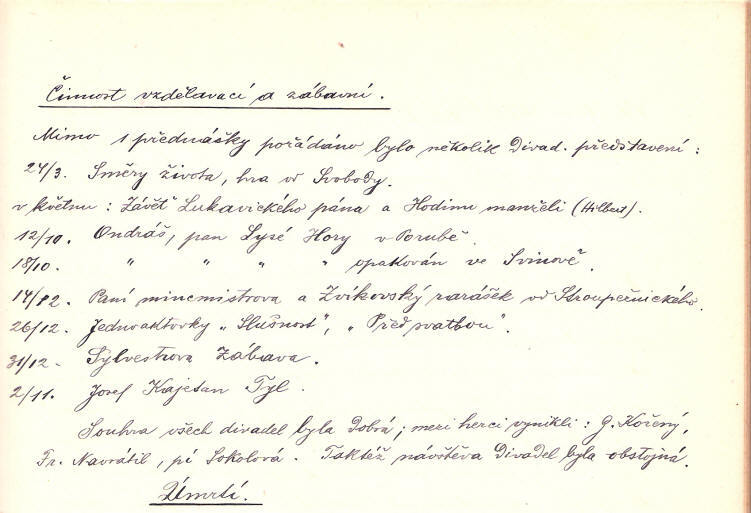 Činnost vzdělavací a zábavní.
Mimo 1 přednášky pořádáno bylo několik Divad. představení:
24/3. Směry života, hra od Svobody.
v květnu: Závěť Lukavického pána a Hodinu manželi (Hilbert).
12/10. Ondráš, pan Lysé Hory v Porubě.
18/10. " " " " opakován ve Svinově.
14/12. Paní mincmistrova a Zvíkovský rarášek od Stroupežnického.
26/12. Jednoaktovky „Slušnost", „Před svatbou".
31/12. Sylvestrova Zábava.
2/11. Josef Kajetan Tyl.
Souhra všech divadel byla Dobrá; mezi herci vynikli: G. Kořený,
Fr. Navrátil, pí Sokolová. Taktéž návštěva Divadel byla obstojná.
Úmrtí.